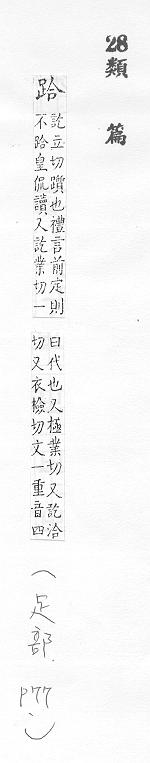 28類 篇
跲
訖立切躓也禮言前定則
不跲皇侃讀又訖業切一
曰代也又極業切又訖洽
切又衣檢切文一重音四
(足部 P77)